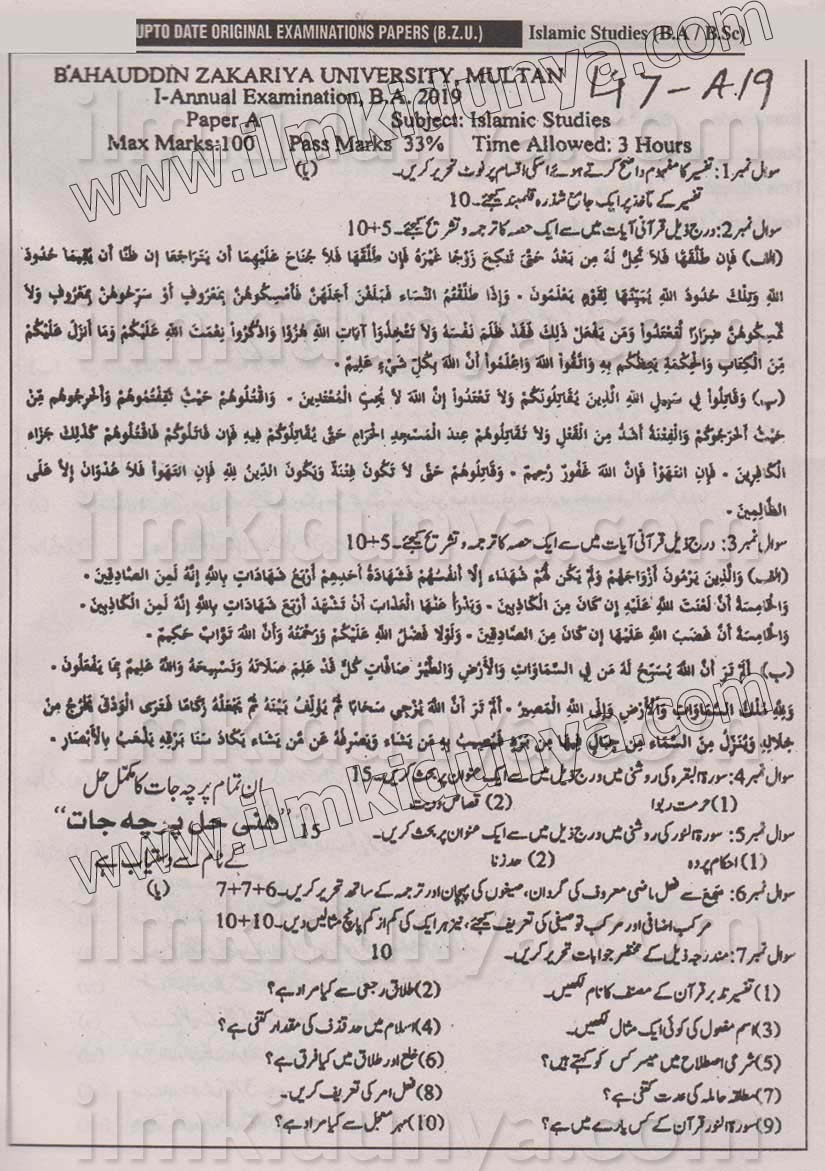 UPTO DATE ORIGINAL EXAMINATIONS PAPERS (B.Z.U.) Islamic Studies (B.A / B.Sc)
BAHAUDDIN ZAKARIYA UNIVERSITY, MULTAN
I-Annual Examination, B.A. 2019
Paper A Subject: Islamic Studies
Max Marks:100 Pass Marks 33% Time Allowed: 3 Hours
سوال نمبر 1: تفسیر کا مفہوم واضح کرتے ہوئے اسکی اقسام پر نوٹ تحریر کریں۔ (یا)
تفسیر کے مآخذ پر ایک جامع شذرہ قلمبند کیجئے۔ 10
سوال نمبر 2: درج ذیل قرآنی آیات میں سے ایک حصہ کا ترجمہ و تشریح کیجئے۔ 5+10
(الف) فَإِن طَلَّقَهَا فَلاَ تَحِلُّ لَهُ مِن بَعْدُ حَتَّىَ تَنكِحَ زَوْجًا غَيْرَهُ فَإِن طَلَّقَهَا فَلاَ جُنَاحَ عَلَيْهِمَا أَن يَتَرَاجَعَا إِن ظَنَّا أَن يُقِيمَا حُدُودَ
اللهِ وَتِلْكَ حُدُودُ اللهِ يُبَيِّنُهَا لِقَوْمٍ يَعْلَمُونَ - وَإِذَا طَلَّقْتُمُ النِّسَاء فَبَلَغْنَ أَجَلَهُنَّ فَأَمْسِكُوهُنَّ بِمَعْرُوفٍ أَوْ سَرِّحُوهُنَّ بِمَعْرُوفٍ وَلاَ
تُمْسِكُوهُنَّ ضِرَارًا لَّتَعْتَدُواْ وَمَن يَفْعَلْ ذَلِكَ فَقَدْ ظَلَمَ نَفْسَهُ وَلاَ تَتَّخِذُوَاْ آيَاتِ اللهِ هُزُوًا وَاذْكُرُواْ نِعْمَتَ اللهِ عَلَيْكُمْ وَمَا أَنزَلَ عَلَيْكُمْ
مِّنَ الْكِتَابِ وَالْحِكْمَةِ يَعِظُكُم بِهِ وَاتَّقُواْ اللهَ وَاعْلَمُواْ أَنَّ اللهَ بِكُلِّ شَيْءٍ عَلِيمٌ -
(ب) وَقَاتِلُواْ فِي سَبِيلِ اللهِ الَّذِينَ يُقَاتِلُونَكُمْ وَلاَ تَعْتَدُواْ إِنَّ اللهَ لاَ يُحِبِّ الْمُعْتَدِينَ - وَاقْتُلُوهُمْ حَيْثُ ثَقِفْتُمُوهُمْ وَأَخْرِجُوهُم مِّنْ
حَيْثُ أَخْرَجُوكُمْ وَالْفِتْنَةُ أَشَدُّ مِنَ الْقَتْلِ وَلاَ تُقَاتِلُوهُمْ عِندَ الْمَسْجِدِ الْحَرَامِ حَتَّى يُقَاتِلُوكُمْ فِيهِ فَإِن قَاتَلُوكُمْ فَاقْتُلُوهُمْ كَذَلِكَ جَزَاء
الْكَافِرِينَ - فَإِنِ انتَهَوْاْ فَإِنَّ اللهَ غَفُورٌ رَّحِيمٌ - وَقَاتِلُوهُمْ حَتَّى لاَ تَكُونَ فِتْنَةٌ وَيَكُونَ الدِّينُ لِلّهِ فَإِنِ انتَهَواْ فَلاَ عُدْوَانَ إِلاَّ عَلَى
الظَّالِمِينَ -
سوال نمبر 3: درج ذیل قرآنی آیات میں سے ایک حصہ کا ترجمہ و تشریح کیجئے۔ 5+10
(الف) وَالَّذِينَ يَرْمُونَ أَزْوَاجَهُمْ وَلَمْ يَكُن لَّهُمْ شُهَدَاء إِلَّا أَنفُسُهُمْ فَشَهَادَةُ أَحَدِهِمْ أَرْبَعُ شَهَادَاتٍ بِاللَّهِ إِنَّهُ لَمِنَ الصَّادِقِينَ -
وَالْخَامِسَةُ أَنَّ لَعْنَتَ اللَّهِ عَلَيْهِ إِن كَانَ مِنَ الْكَاذِبِينَ - وَيَدْرَأُ عَنْهَا الْعَذَابَ أَنْ تَشْهَدَ أَرْبَعَ شَهَادَاتٍ بِاللَّهِ إِنَّهُ لَمِنَ الْكَاذِبِينَ -
وَالْخَامِسَةَ أَنَّ غَضَبَ اللَّهِ عَلَيْهَا إِن كَانَ مِنَ الصَّادِقِينَ - وَلَوْلَا فَضْلُ اللَّهِ عَلَيْكُمْ وَرَحْمَتُهُ وَأَنَّ اللَّهَ تَوَّابٌ حَكِيمٌ -
(ب) أَلَمْ تَرَ أَنَّ اللَّهَ يُسَبِّحُ لَهُ مَن فِي السَّمَاوَاتِ وَالْأَرْضِ وَالطَّيْرُ صَافَّاتٍ كُلٌّ قَدْ عَلِمَ صَلَاتَهُ وَتَسْبِيحَهُ وَاللَّهُ عَلِيمٌ بِمَا يَفْعَلُونَ -
وَلِلَّهِ مُلْكُ السَّمَاوَاتِ وَالْأَرْضِ وَإِلَى اللَّهِ الْمَصِيرُ - أَلَمْ تَرَ أَنَّ اللَّهَ يُزْجِي سَحَابًا ثُمَّ يُؤَلِّفُ بَيْنَهُ ثُمَّ يَجْعَلُهُ رُكَامًا فَتَرَى الْوَدْقَ يَخْرُجُ مِنْ
خِلَالِهِ وَيُنَزِّلُ مِنَ السَّمَاء مِن جِبَالٍ فِيهَا مِن بَرَدٍ فَيُصِيبُ بِهِ مَن يَشَاء وَيَصْرِفُهُ عَن مَّن يَشَاء يَكَادُ سَنَا بَرْقِهِ يَذْهَبُ بِالْأَبْصَارِ -
سوال نمبر 4: سورۃ البقرہ کی روشنی میں درج ذیل میں سے ایک عنوان پر بحث کریں۔ 15
(1) حرمت ربوا (2) قصاص و دیت
سوال نمبر 5: سورۃ النور کی روشنی میں درج ذیل میں سے ایک عنوان پر بحث کریں۔ 15
(1) احکام پردہ (2) حد زنا
ان تمام پرچہ جات کا مکمل حل
"ھنی حل پرچہ جات"
کے نام سے دستیاب ہے
سوال نمبر 6: سَمِعَ سے فعل ماضی معروف کی گردان، صیغوں کی پہچان اور ترجمہ کے ساتھ تحریر کریں۔ 6+7+7 (یا)
مرکب اضافی اور مرکب توصیفی کی تعریف کیجئے، نیز ہر ایک کی کم از کم پانچ مثالیں دیں۔ 10+10
سوال نمبر 7: مندرجہ ذیل کے مختصر جوابات تحریر کریں۔ 10
(1) تفسیر تدبر قرآن کے مصنف کا نام لکھیں۔ (2) طلاق رجعی سے کیا مراد ہے؟
(3) اسم مفعول کی کوئی ایک مثال لکھیں۔ (4) اسلام میں حد قذف کی مقدار کتنی ہے؟
(5) شرعی اصطلاح میں میسر کس کو کہتے ہیں؟ (6) خلع اور طلاق میں کیا فرق ہے؟
(7) مطلقہ حاملہ کی عدت کتنی ہے؟ (8) فعل امر کی تعریف کریں۔
(9) سورۃ النور قرآن کے کس پارے میں ہے؟ (10) مہر معجل سے کیا مراد ہے؟
www.ilmkidunya.com
ilmkidunya.com